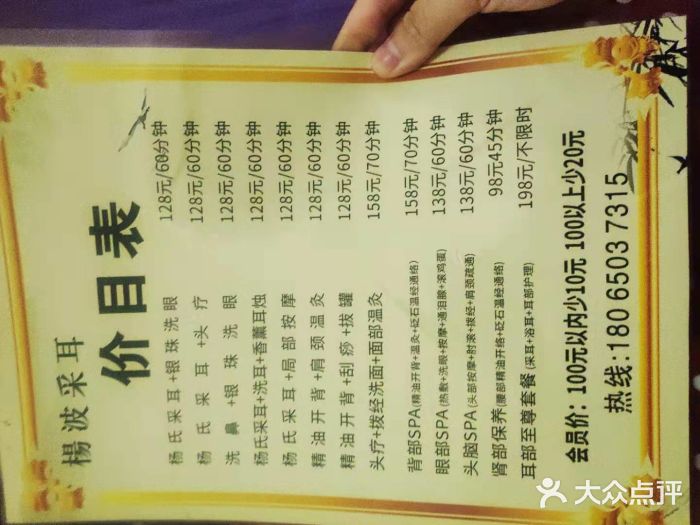 楊波采耳
价目表
杨氏采耳+银珠洗眼 128元/60分钟
杨氏采耳+头疗 128元/60分钟
洗鼻+银珠洗眼 128元/60分钟
杨氏采耳+洗耳+香薰耳烛 128元/60分钟
杨氏采耳+局部按摩 128元/60分钟
精油开背+肩颈温灸 128元/60分钟
精油开背+刮痧+拔罐 128元/60分钟
头疗+拨经洗面+面部温灸 158元/70分钟
背部SPA(精油开背+温灸+砭石温经通络) 158元/70分钟
眼部SPA(热敷+洗眼+按摩+通泪腺+滚鸡蛋) 138元/60分钟
头脑SPA(头部按摩+肘滚+拨经+肩颈疏通) 138元/60分钟
肾部保养(腰部精油开络+砭石温经通络) 98元45分钟
耳部至尊套餐(采耳+浴耳+耳部护理) 198元/不限时
会员价：100元以内少10元 100以上少20元
热线:180 6503 7315
大众点评